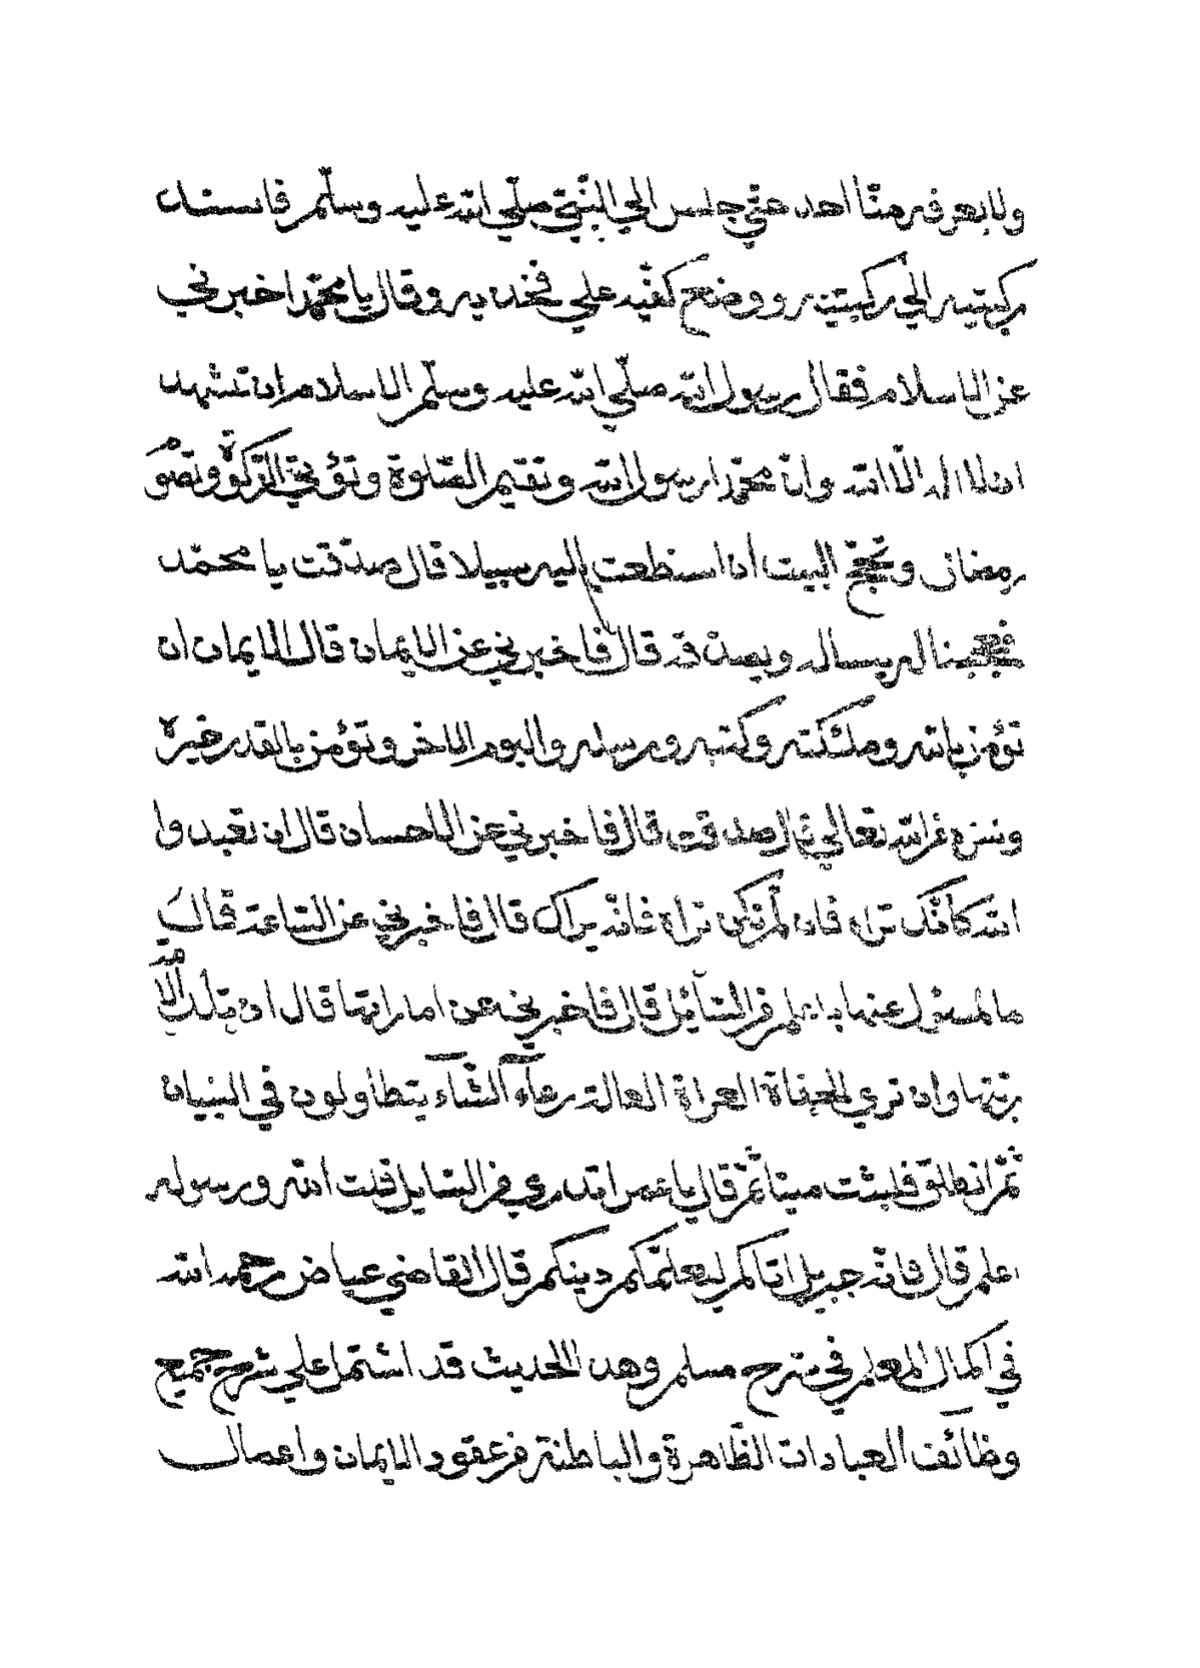 ولا يعرفه منّا احد حتي جلس الي النّبيّ صلّي الله عليه وسلّم فاسند
ركبتيه الي ركبتيه ووضع كفّيه علي فخذيه وقال يا محمّد اخبرني
عن الاسلام فقال رسول الله صلّي الله عليه وسلّم الاسلام ان تشهد
ان لا اله الّا الله وانّ محمّدا رسول الله وتقيم الصّلوة وتؤتي الزّكوة وتصوم
رمضان وتحجّ البيت أن استطعت إليه سبيلا قال صدقت يا محمّد
فعجبنا له يسأله ويصدّقه قال فاخبرني عن الايمان قال الايمان ان
تؤمن بالله وملئكته وكتبه ورسله واليوم الاخر وتؤمن بالقدر خيره
وشره من الله تعالي قال صدقت قال فاخبرني عن الاحسان قال ان تعبد وا
الله كأنّك تراه فان لم تكن تراه فانّه يراك قال فاخبرني عن السّاعة قال
ما المسئول عنها باعلم من السّآئل قال فاخبرني عن اماراتها قال ان تلد الامة
ربّتها وان تري الحفاة العراة العالة رعآء الشّآء يتطاولون في البنيان
ثمّ انطلق فلبثت مليّا ثمّ قال يا عمر اتدري من السّايل قلت الله ورسوله
اعلم قال فانّه جبريل اتاكم ليعلّمكم دينكم قال القاضي عياض رحمه الله
في اكمال المعلم في شرح مسلم وهذا الحديث قد اشتمل علي شرح جميع
وظآئف العبادات الظّاهرة والباطنة من عقود الايمان واعمال